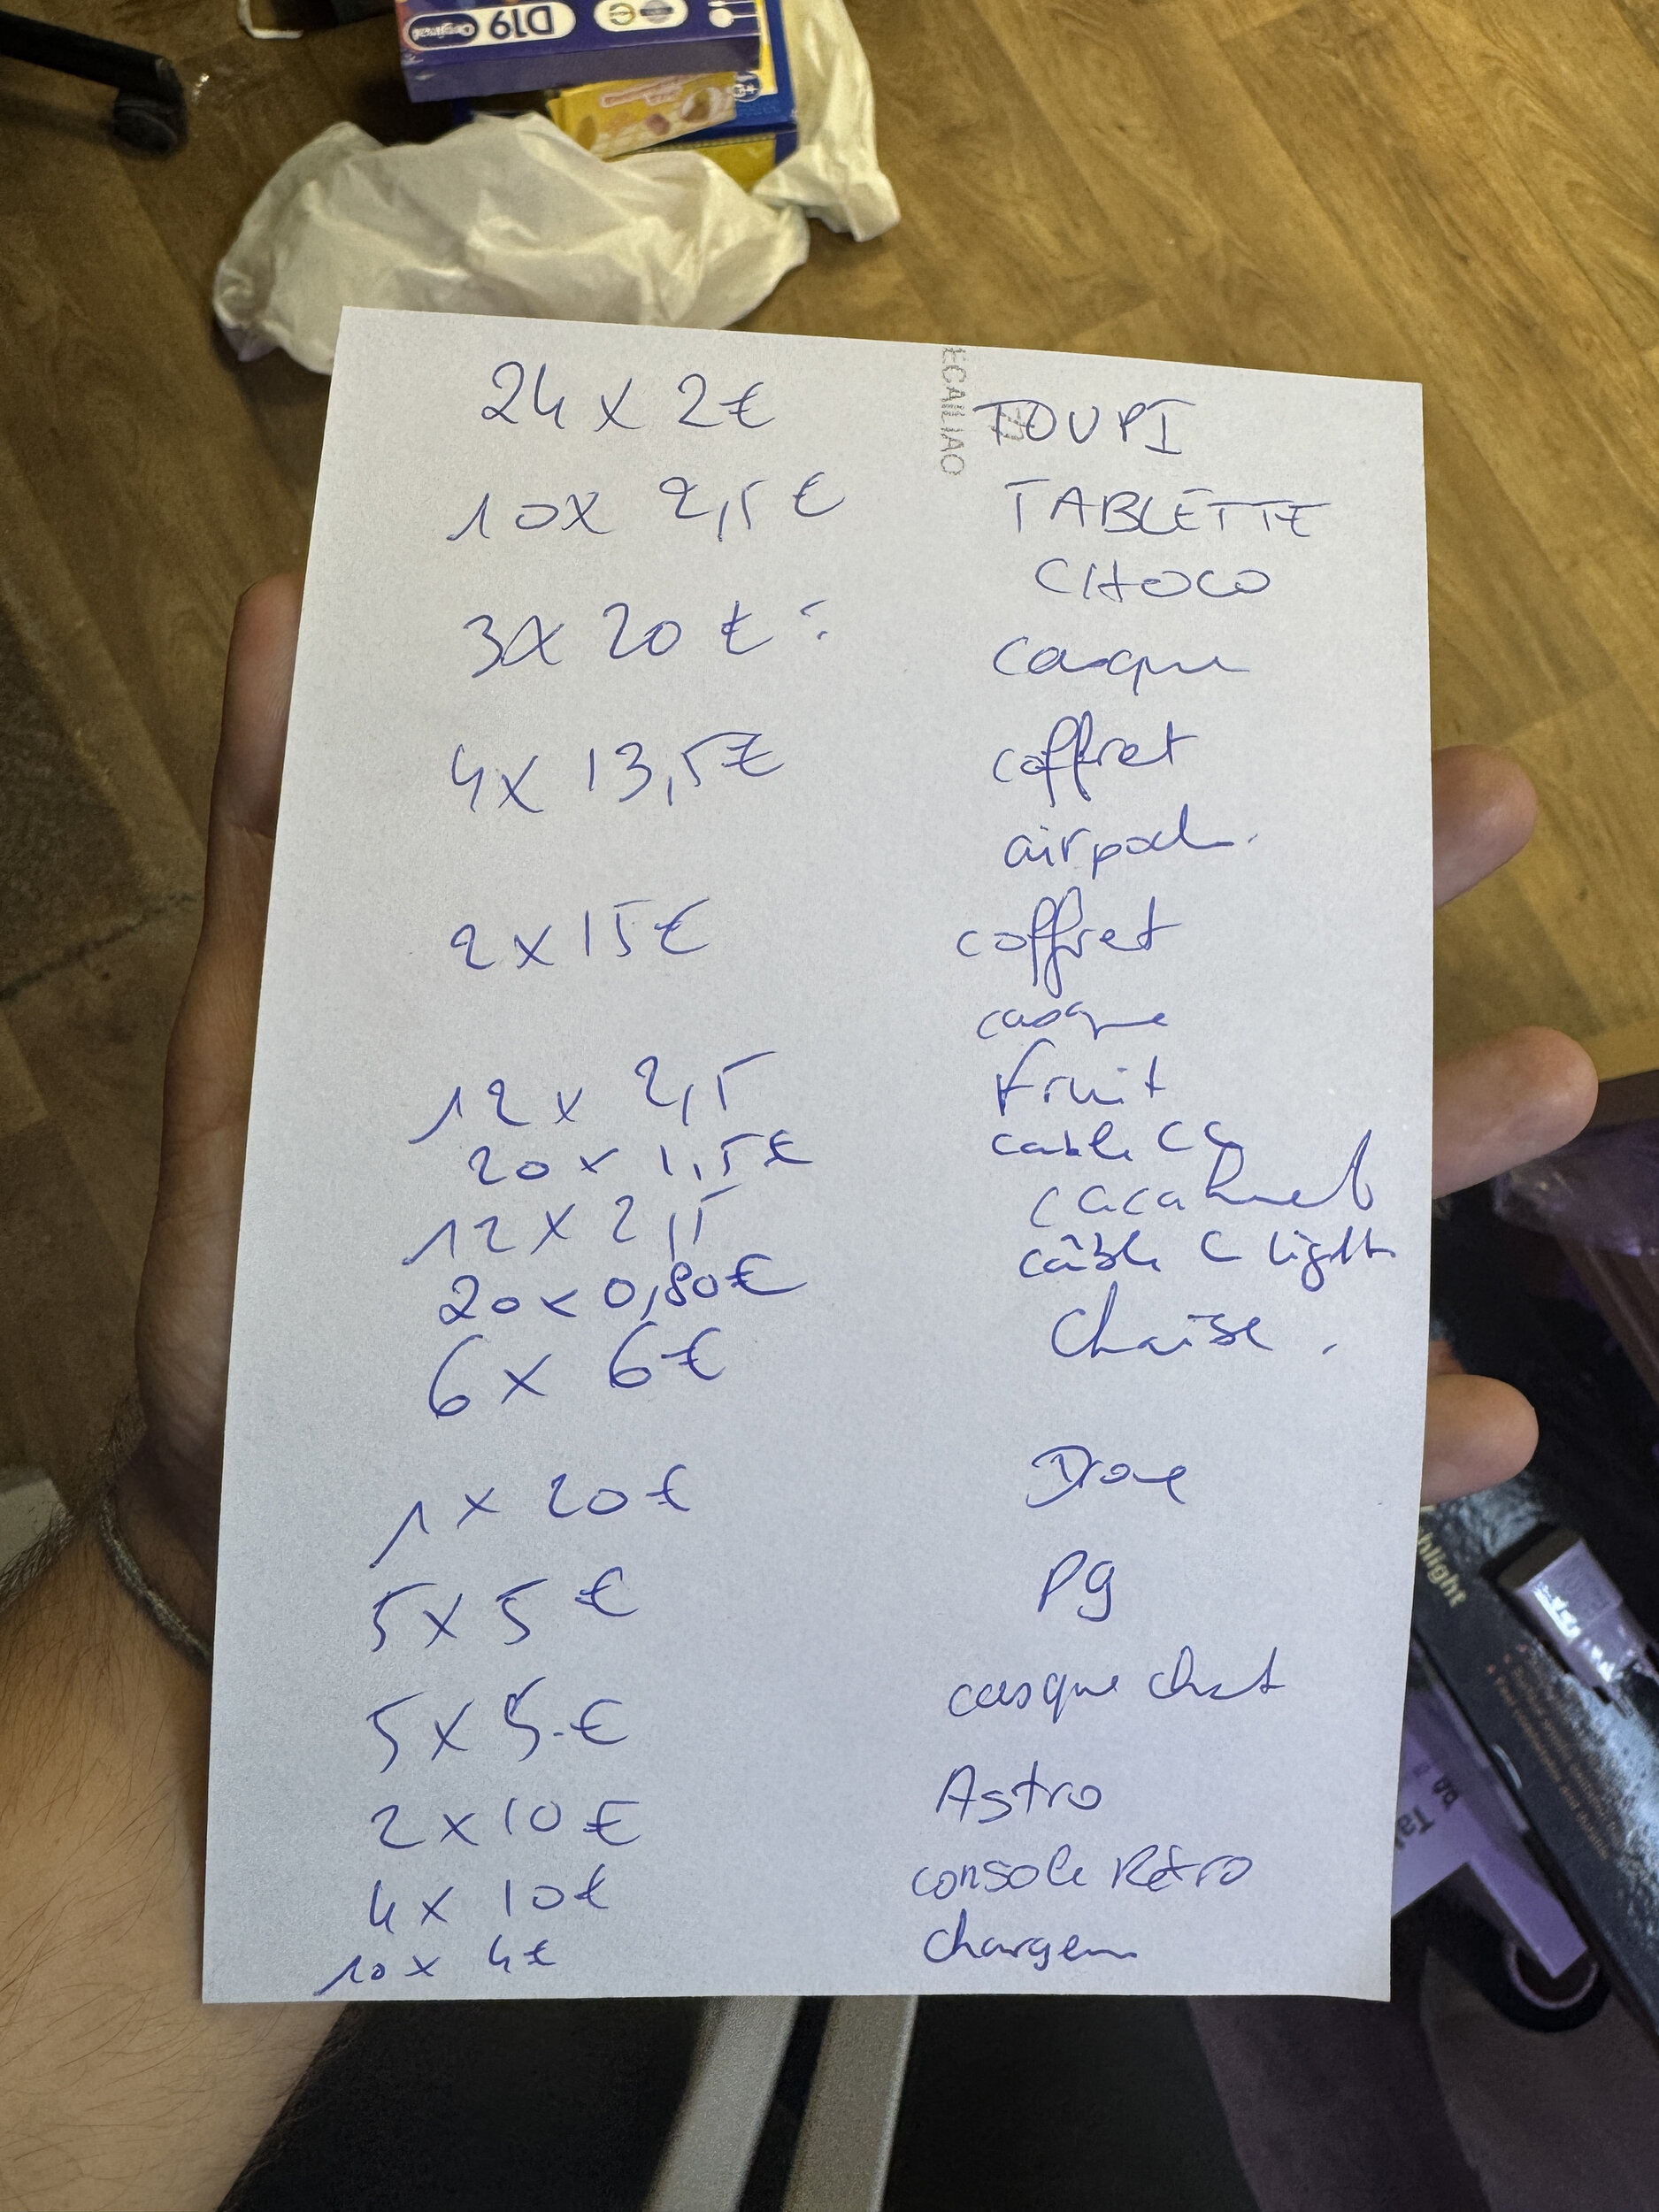 D19
Original
24 x 2€ TOUPI
ECAILIAO
10x 2,5€ TABLETTE
CHOCO
3x 20€ : casque
4x 13,5€ coffret
airpods
2 x 15€ coffret
casque
12 x 2,5 fruit
20 x 1,5€ cable CC
12 x 2,5 cacahuet
20 x 0,80€ câble C light
6 x 6€ Chaise
1 x 20€ Drone
5 x 5€ pg
5 x 5€ casque chat
2 x 10€ Astro
4 x 10€ console Rétro
10 x 4€ chargeur
hlight